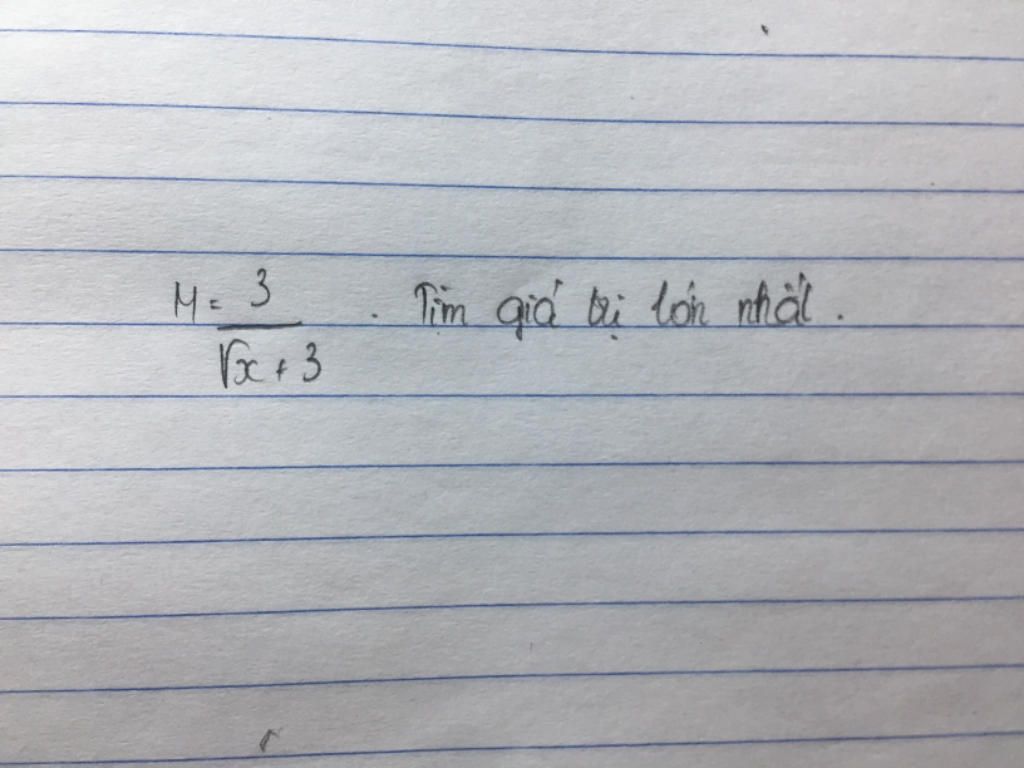 M = 3/(√x + 3) . Tìm giá trị lớn nhất.